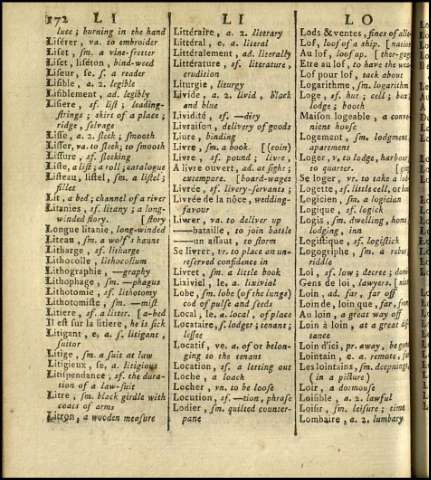 172 LI LI LO
lute ; burning in the hand
Liſérer, va. to embroider
Liſet, ſm. a vine-fretter
Liſet, liſéton, bind-weed
Liſeur, ſe. ſ. a reader
Liſible, a. 2. legible
Liſiblement, ad. legibly
Liſiere, ſf. liſt ; leading-
ſtrings ; skirt of a place ;
ridge, ſelvage
Liſſe, a. 2. ſleek ; ſmooth
Liſſer, va. to ſleek ; to ſmooth
Liſſure, ſf. ſleeking
Liſte, a liſt ; a roll ; catalogue
Liſteau, liſtel, ſm. a liſtel ;
fillet
Lit, a bed ; channel of a river
Litanies, ſf. litany ; a long-
winded ſtory. [ſtory
Longue litanie, long-winded
Liteau, ſm. a wolf's haunt
Litharge, ſf. litharge
Lithocolle, lithocollum
Lithographie, —graphy
Lithophage, ſm. —phagus
Lithotomie, ſf. lithotomy
Lithotomiſte, ſm. —miſt
Litiere, ſf. a litter. [a-bed
Il eſt ſur la litiere, he is ſick
Litigant, e, a. ſ. litigant,
ſuitor
Litige, ſm. a ſuit at law
Litigieux, ſe, a. litigious
Litiſpendance, ſf. the dura-
tion of a law-ſuit
Litre, ſm. black girdle with
coats of arms
Litron, a wooden meaſure
Littéraire, a. 2. literary
Littéral, e, a. literal
Littéralement, ad. literally
Littérature, ſf. literature,
erudition
Liturgie, liturgy
Livide, a. 2. livid, black
and blue
Lividité, ſf. —dity
Livraiſon, delivery of goods
Liure, binding
Livre, ſm. a book. [(coin)
Livre, ſf. pound ; livre,
A livre ouvert, ad. at ſight ;
extempore. [board-wages
Livrée, ſf. livery-ſervants ;
Livrée de la nôce, wedding-
favour
Livrer, va. to deliver up
—bataille, to join battle
—un aſſaut, to ſtorm
Se livrer, vr. to place an un-
reſerved confidence in
Livret, ſm. a little book
Lixiviel, le, a. lixivial
Lobe, ſm. lobe (of the lungs)
cod of pulſe and ſeeds
Local, le, a. local, of place
Locataire, ſ. lodger ; tenant ;
leſſee
Locatif, ve, a. of or belon-
ging to the tenant
Location, ſf. a letting out
Loche, a loach
Locher, vn. to be looſe
Locution, ſf. —tion, phraſe
Lodier, ſm. quilted counter-
pane
Lods & ventes, fines of alie-
Lof, loof of a ſhip. [
Au lof, loof up. [
Etre au lof, to have the
Lof pour lof, tack about
Logarithme, ſm. logarithm
Loge, ſf. hut ; cell ; box ;
lodge ; booth
Maiſon logeable, a conve-
nient houſe
Logement, ſm. lodgment,
apartement
Loger, v. to lodge, harbour,
to quarter.
Se loger, vr. to take a
Logette, ſf. little cell, or hut
Logicien, ſm. a logician
Logique, ſf. logick
Logis, ſm. dwelling, home,
lodging, inn
Logiſtique, ſf. logiſtick
Logogriphe, ſm. a
riddle
Loi, ſf. law ; decree ;
Gens de loi, lawyers.
Loin, ad. far, far off
Loin de, loin que, far,
Au loin, a great way off
Loin à loin, at a great di-
ſtance
Loin d'ici, pr. away, be
Lointain, e, a. remote,
Les lointains, ſm.
(in a picture)
Loir, a dormouſe
Loiſible, a. 2. lawful
Loiſir, ſm. leiſure ; time
Lombaire, a. 2. lumbary